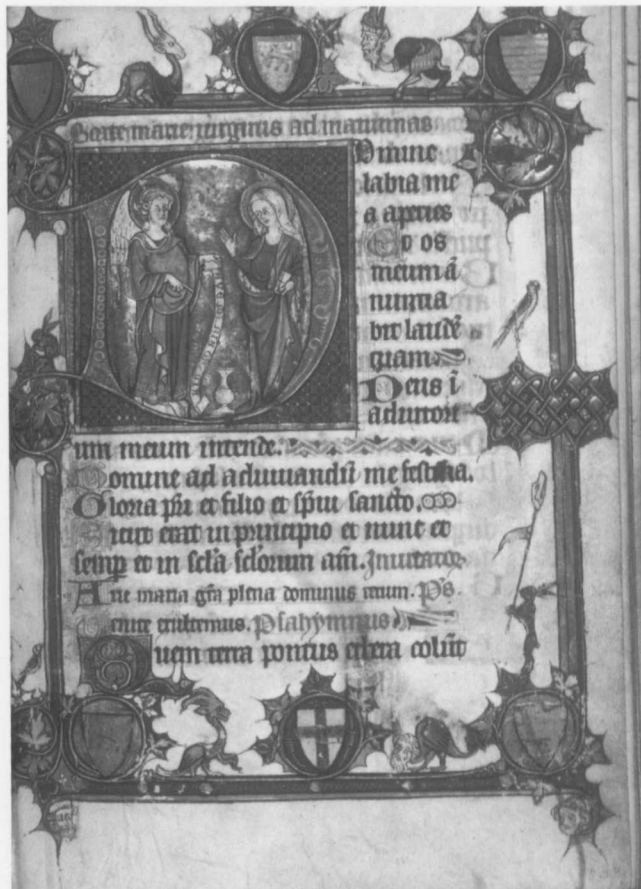 Beate marie uirginis ad matutinas
Domine
labia me
a aperies
Et os
meum ã
nuntia
bit laudẽ
tuam.
Deus ĩ
adiutori
um meum intende.
Domine ad adiuuandũ me festina.
Gloria pr̃i et filio et sp̃ui sancto.
Sicut erat in principio et nunc et
semꝑ et in sc̃la sc̃lorum am̃. Inuitator.
Aue maria gr̃a plena dominus tecum. P̃s.
Uenite exultemus. Psalhymnus
Quem terra pontus ethera colũt